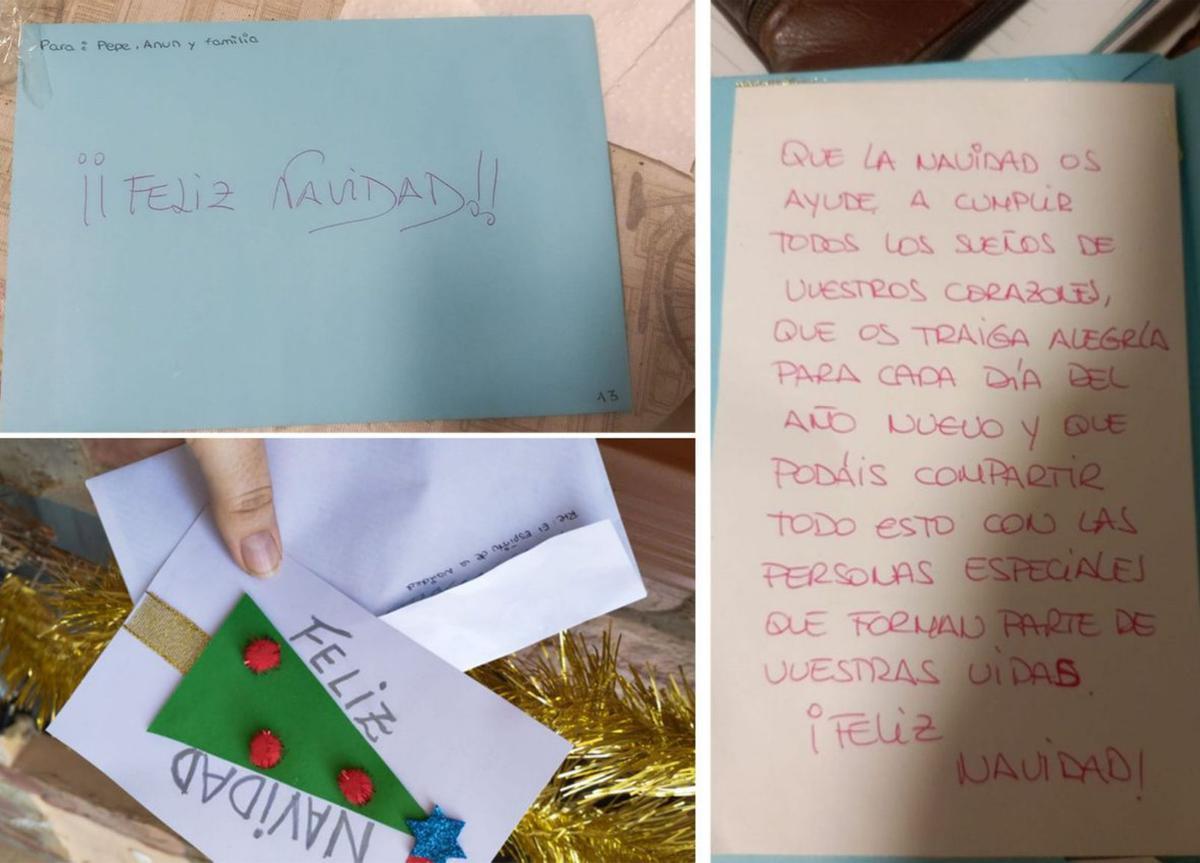 Para: Pepe, Anun y familia
¡¡FELIZ NAVIDAD!!
13
Rte: El Espíritu de la Navidad
FELIZ
NAVIDAD
QUE LA NAVIDAD OS
AYUDE A CUMPLIR
TODOS LOS SUEÑOS DE
VUESTROS CORAZONES,
QUE OS TRAIGA ALEGRÍA
PARA CADA DÍA DEL
AÑO NUEVO Y QUE
PODÁIS COMPARTIR
TODO ESTO CON LAS
PERSONAS ESPECIALES
QUE FORMAN PARTE DE
VUESTRAS VIDAS.
¡FELIZ
NAVIDAD!